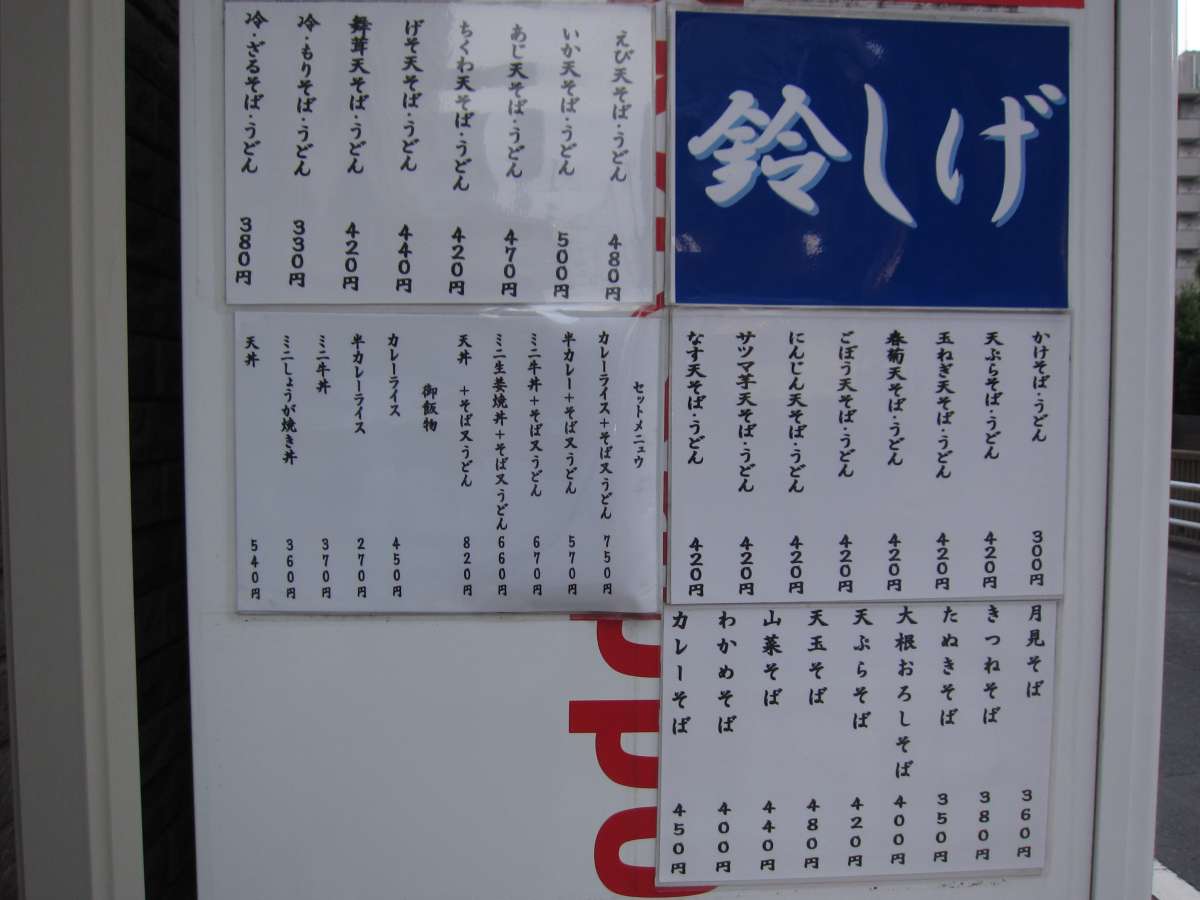 鈴しげ
えび天そば・うどん 480円
いか天そば・うどん 500円
あじ天そば・うどん 470円
ちくわ天そば・うどん 420円
げそ天そば・うどん 440円
舞茸天そば・うどん 420円
冷・もりそば・うどん 330円
冷・ざるそば・うどん 380円
かけそば・うどん 300円
天ぷらそば・うどん 420円
玉ねぎ天そば・うどん 420円
春菊天そば・うどん 420円
ごぼう天そば・うどん 420円
にんじん天そば・うどん 420円
サツマ芋天そば・うどん 420円
なす天そば・うどん 420円
セットメニュウ
カレーライス+そば又うどん 750円
半カレー+そば又うどん 570円
ミニ牛丼+そば又うどん 670円
ミニ生姜焼丼+そば又うどん 660円
天丼 +そば又うどん 820円
御飯物
カレーライス 450円
半カレーライス 270円
ミニ牛丼 370円
ミニしょうが焼き丼 360円
天丼 540円
月見そば 360円
きつねそば 380円
たぬきそば 350円
大根おろしそば 400円
天ぷらそば 420円
天玉そば 480円
山菜そば 440円
わかめそば 400円
カレーそば 450円